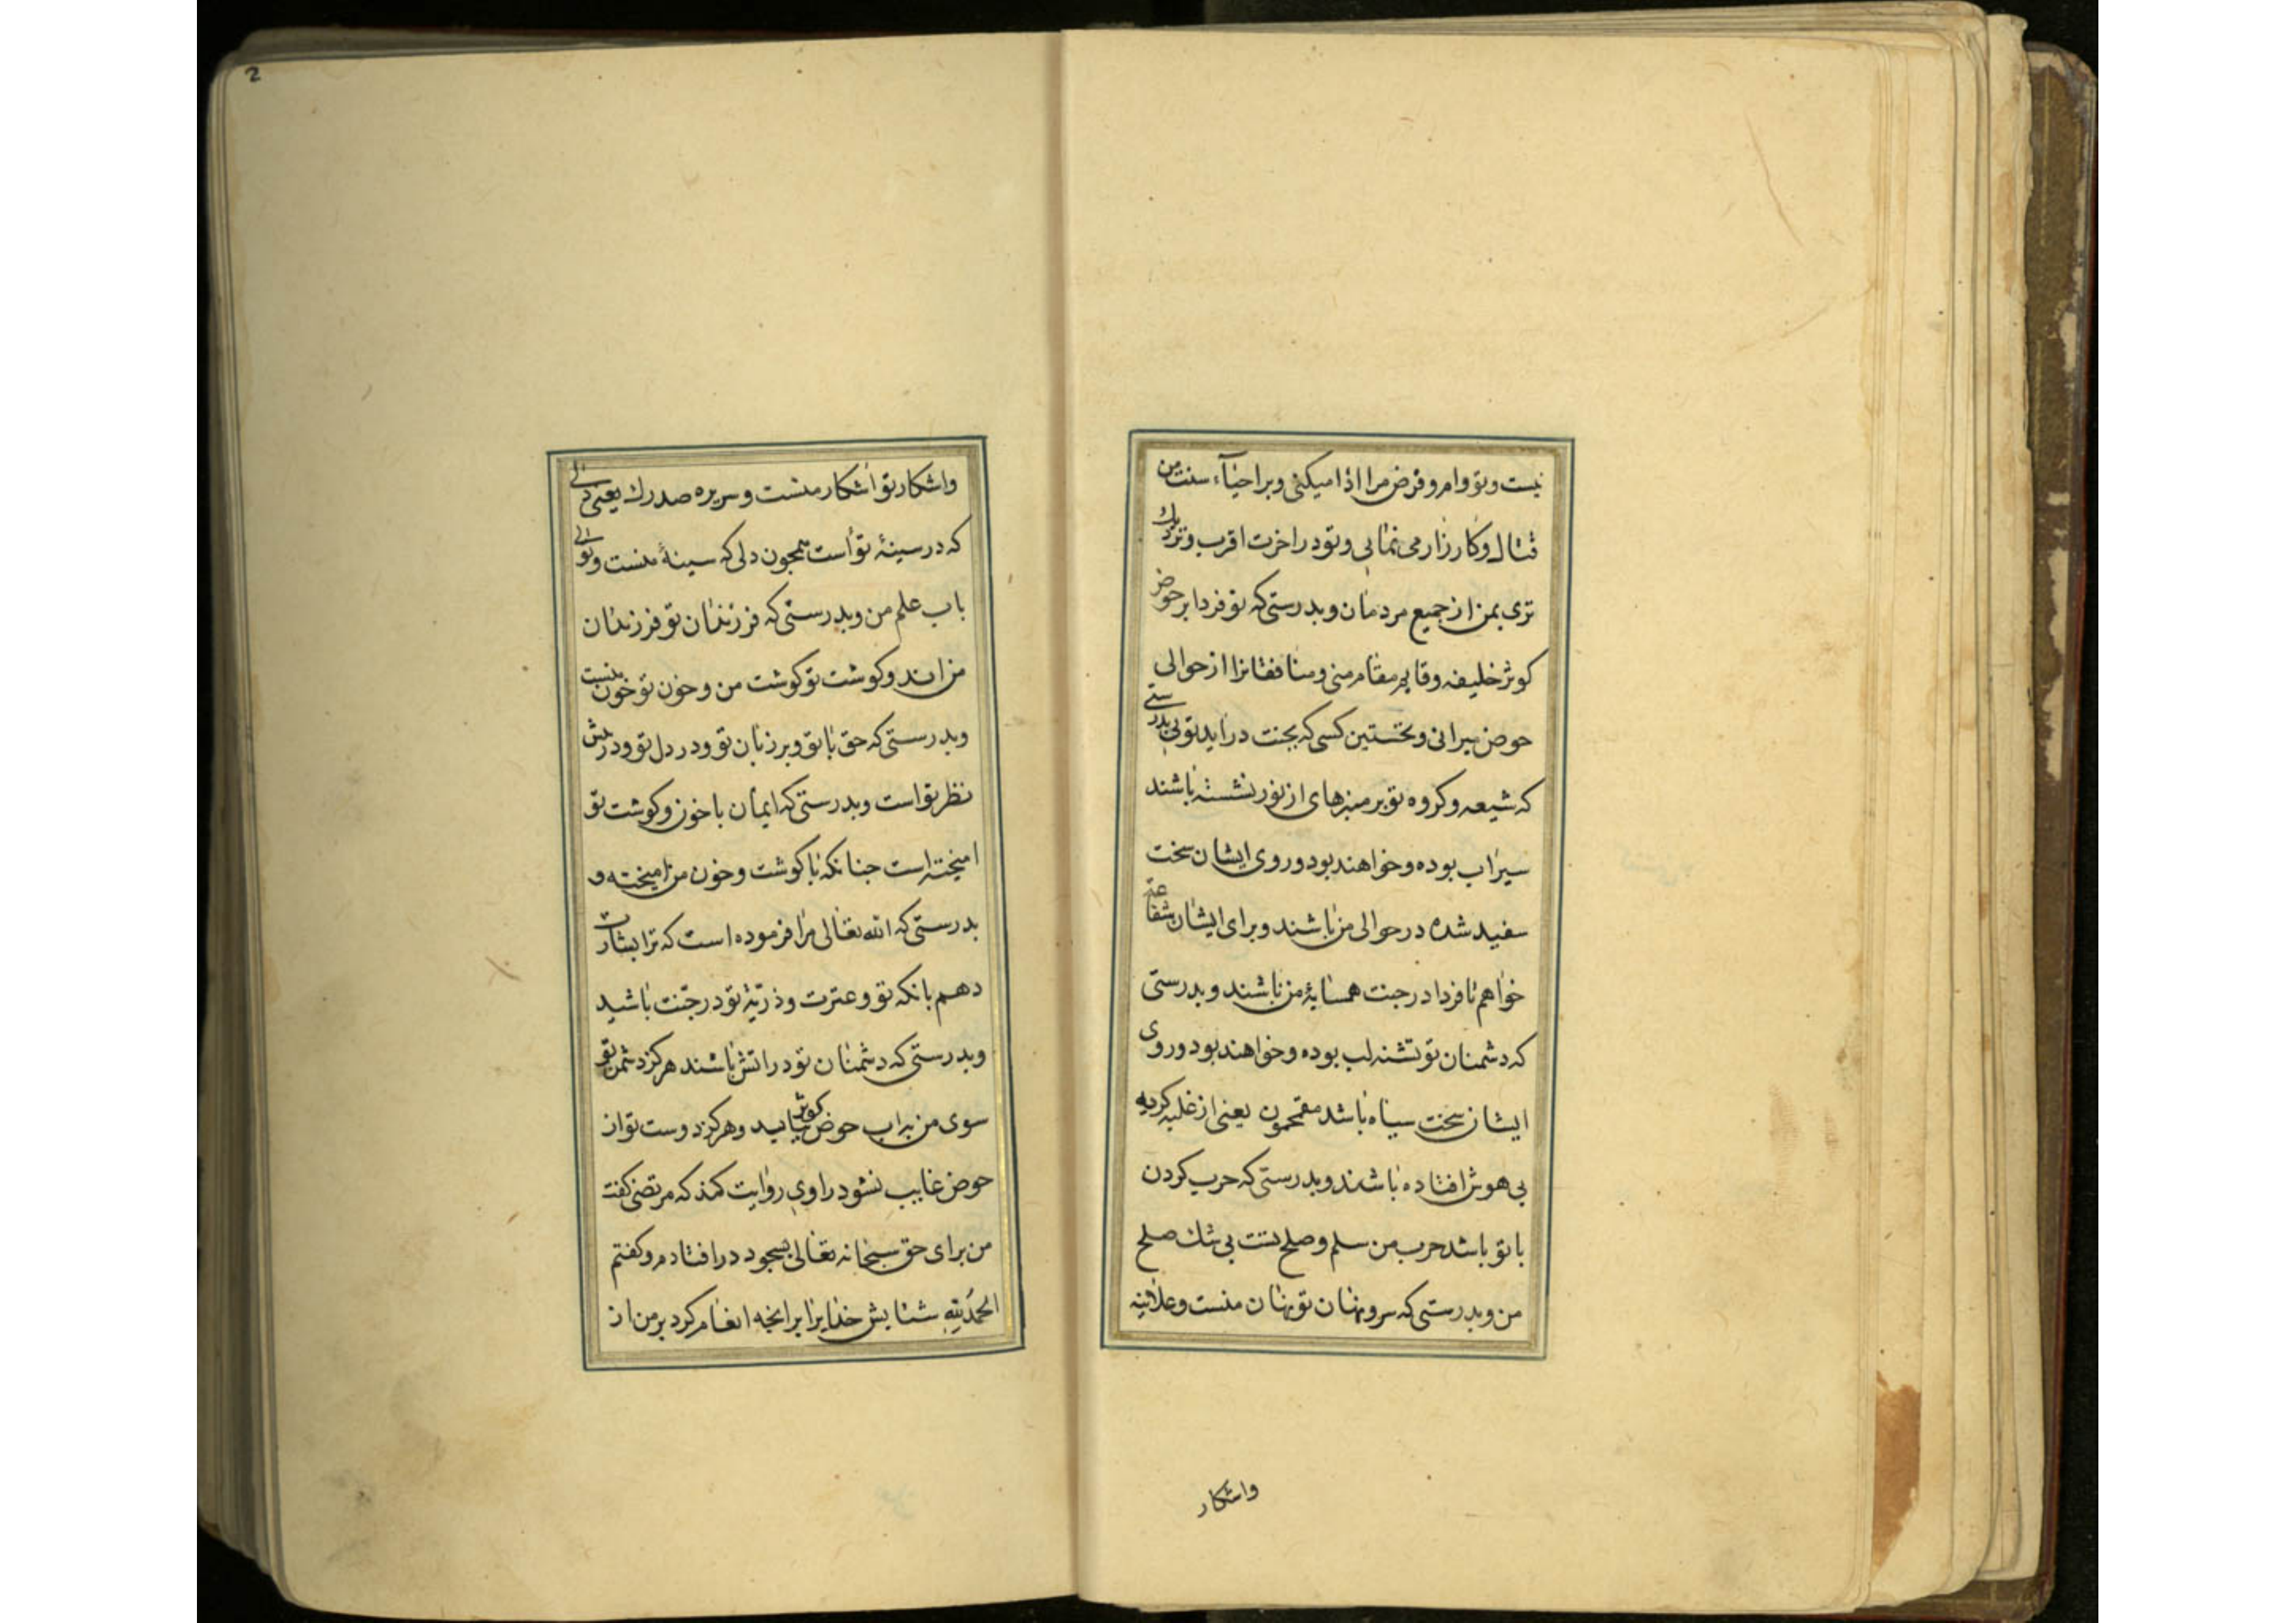 نیست و تو وام و قرض مرا اذا میکنی و بر احیآء سنت من
قتال و کارزار می نمائی و تو در اخرت اقرب و نزدیك
تری بمن از جمیع مردمان و بدرستی که تو فردا بر حوض
کوثر خلیفه و قایم مقام منی و منافقانرا از حوالی
حوض میرانی و نخستین کسی که بجنت در اید توئی بدرستی
که شیعه و کروه تو بر منبرهای از نور نشسته باشند
سیراب بوده و خواهند بود و روی ایشان سخت
سفید شده در حوالی من باشند و برای ایشان شفاعة
خواهم تا فردا در جنت همسایۀ من باشند و بدرستی
که دشمنان تو تشنه لب بوده و خواهند بود و روی
ایشان سخت سیاه باشد مقمحون یعنی از غلبه کریه
بی هوش افتاده باشند و بدرستی که حرب کردن
با تو باشد حرب من سلم و صلح تست بی شك صلح
من و بدرستی که سر و نهان تو نهان منست و علانیه
واشکار
2
واشکار تو اشکار منست و سریره صدرك یعنی
که در سینۀ تو است همچون دلی که سینۀ منست و توئی
باب علم من و بدرستی که فرزندان تو فرزندان
من اند و کوشت تو کوشت من و خون تو خون منست
و بدرستی که حق با تو و بر زبان تو و در دل تو و در پیش
نظر تو است و بدرستی که ایمان با خون و کوشت تو
امیخته است جنانکه با کوشت و خون من امیخته و
بدرستی که الله تعالی مرا فرموده است که ترا بشارت
دهم بانکه تو و عترت و ذریۀ تو در جنت باشید
و بدرستی که دشمنان تو در اتش باشند هرکز دشمن تو
سوی من بر اب حوض کوثر نیاید و هرکز دوست تو از
حوض غایب نشود راوی روایت کند که مرتضی کفت
من برای حق سبحانه تعالی بسجود در افتادم و کفتم
الحمد لله ستایش خدایرا بر انچه انعام کرد بر من از